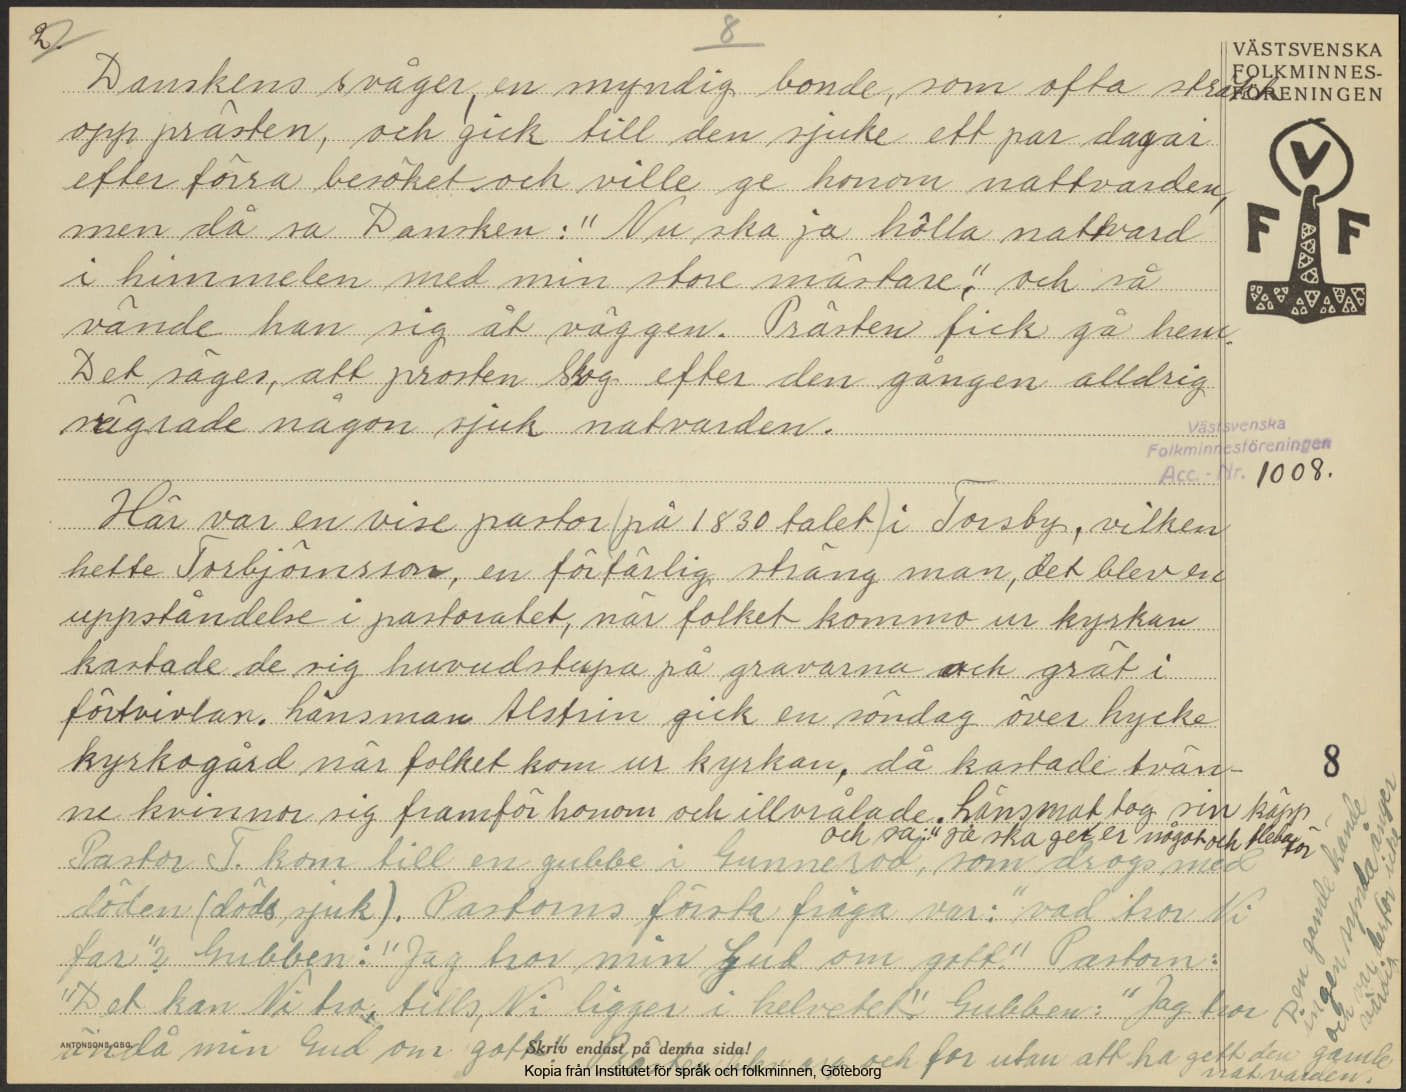 2.
8
VÄSTSVENSKA
FOLKMINNES-
FÖRENINGEN
V
F F
Danskens svåger, en myndig bonde, som ofta sträck
opp prästen, och gick till den sjuke ett par dagar
efter förra besöket och ville ge honom nattvarden,
men då sa Dansken: "Nu ska ja hôlla nattvard
i himmelen med min store mästare," och så
vände han sig åt väggen. Prästen fick gå hem.
Det säges, att prosten Skog efter den gången alldrig
vägrade någon sjuk natvarden.
Västsvenska
Folkminnesföreningen
Acc.-Nr. 1008.
Här var en vise pastor (på 1830 talet) i Torsby, vilken
hette Torbjörnsson, en förfärlig sträng man, det blev en
uppståndelse i pastoratet, när folket kommo ur kyrkan
kastade de sig huvudstupa på gravarna och grät i
förtvivlan. Länsman Alstrin gick en söndag över Lycke
kyrkogård när folket kom ur kyrkan, då kastade tvän-
ne kvinnor sig framför honom och illvrålade. Länsman tog sin käpp
och sa: "ja ska ge er något och för
8
Pastor T. kom till en gubbe i Gunneröd, som drogs med
döden (döds sjuk). Pastorns första fråga var: "vad tror Ni
far"? Gubben: "Jag tror min Gud om gott." Pastorn:
"Det kan Ni tro, tills Ni ligger i helvetet." Gubben: "Jag tror
ändå min Gud om gott." och for utan att ha gett den gamle
natvarden.
Den gamle kände
ingen synda ånger
och var därför icke
ANTONSONS, GBG.
Skriv endast på denna sida!
Kopia från Institutet för språk och folkminnen, Göteborg